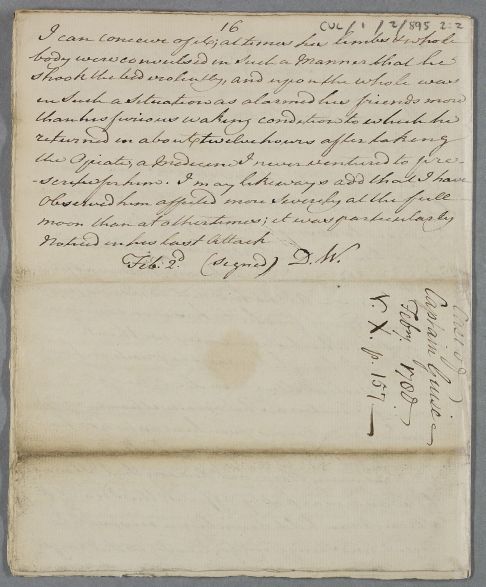 16
CUL/1/2/895 2:2
I can conceive of it; at times his limbs & whole
body were convulsed in Such a Manner that he
shook the bed violently, and upon the whole was
in Such a situation as alarmed his friends more
than his furious waking condition to which he
returned in about twelve hours after taking
the Opiate, a Medecin I never ventured to pre-
-scribe for him. I may likeways add that I have
Observed him affected more Severely at the full
moon than at other times; it was particularly
Noticed in his last Attack
Feb: 2d. (Signed) D. W.
Case of
Captain Guise
Febry. 1780.
V. X. p. 157